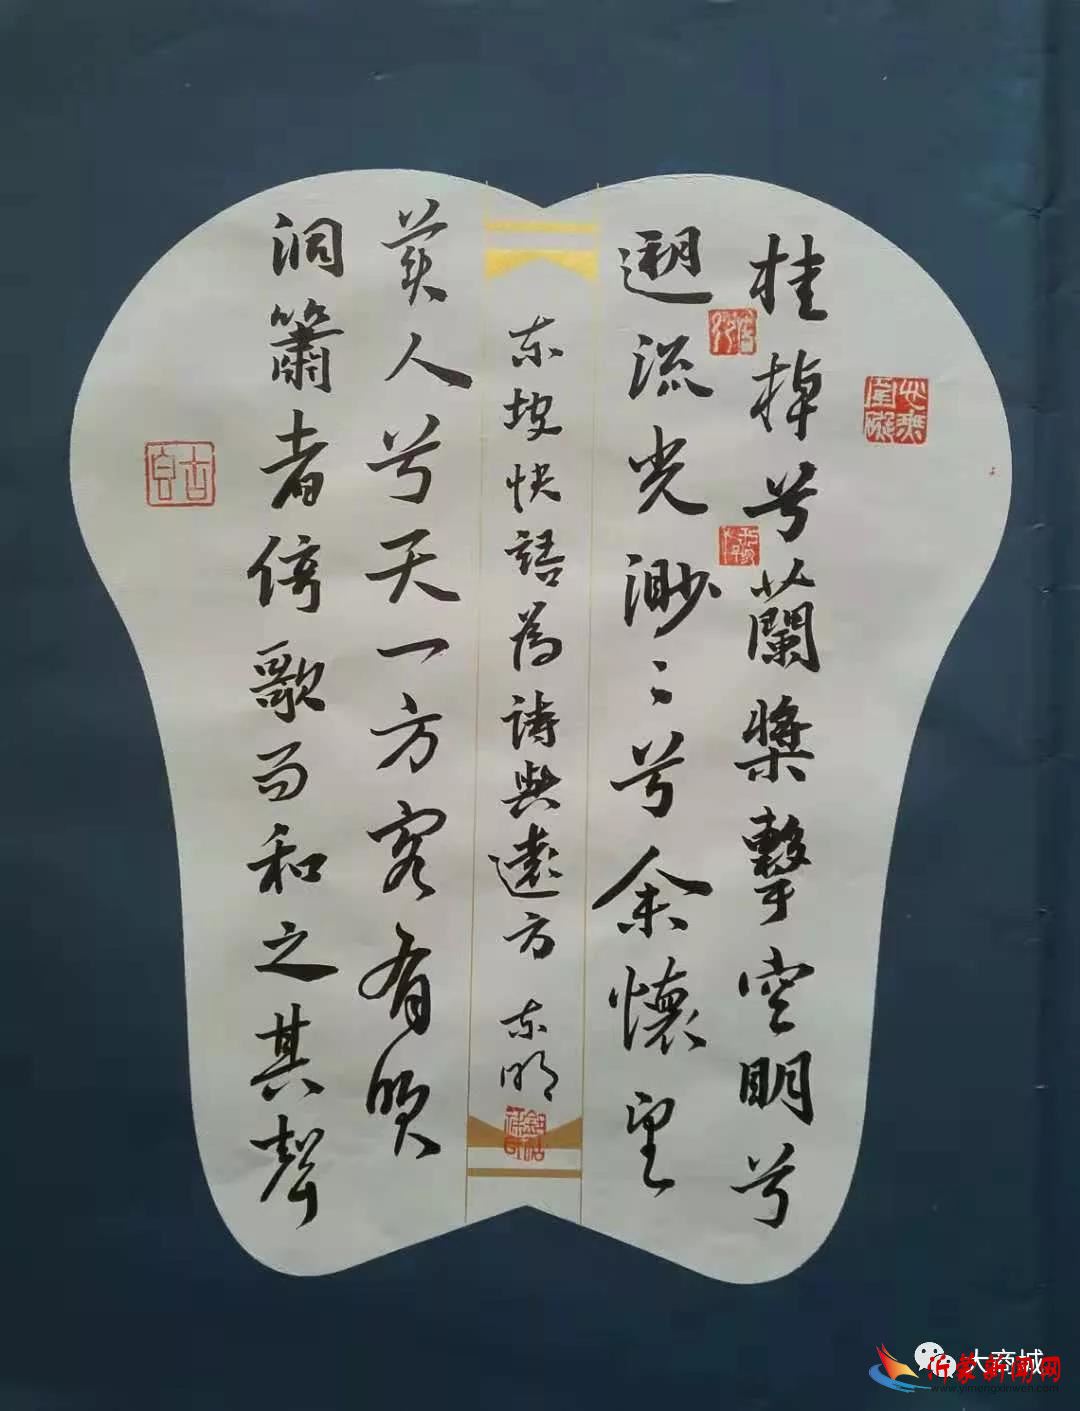 桂棹兮蘭槳擊空明兮
遡流光渺々兮余懷望
东坡快語為詩與遠方 东明
美人兮天一方客有吹
洞簫者倚歌而和之其聲
大商城
沂蒙新闻网
www.yimengxinwen.com